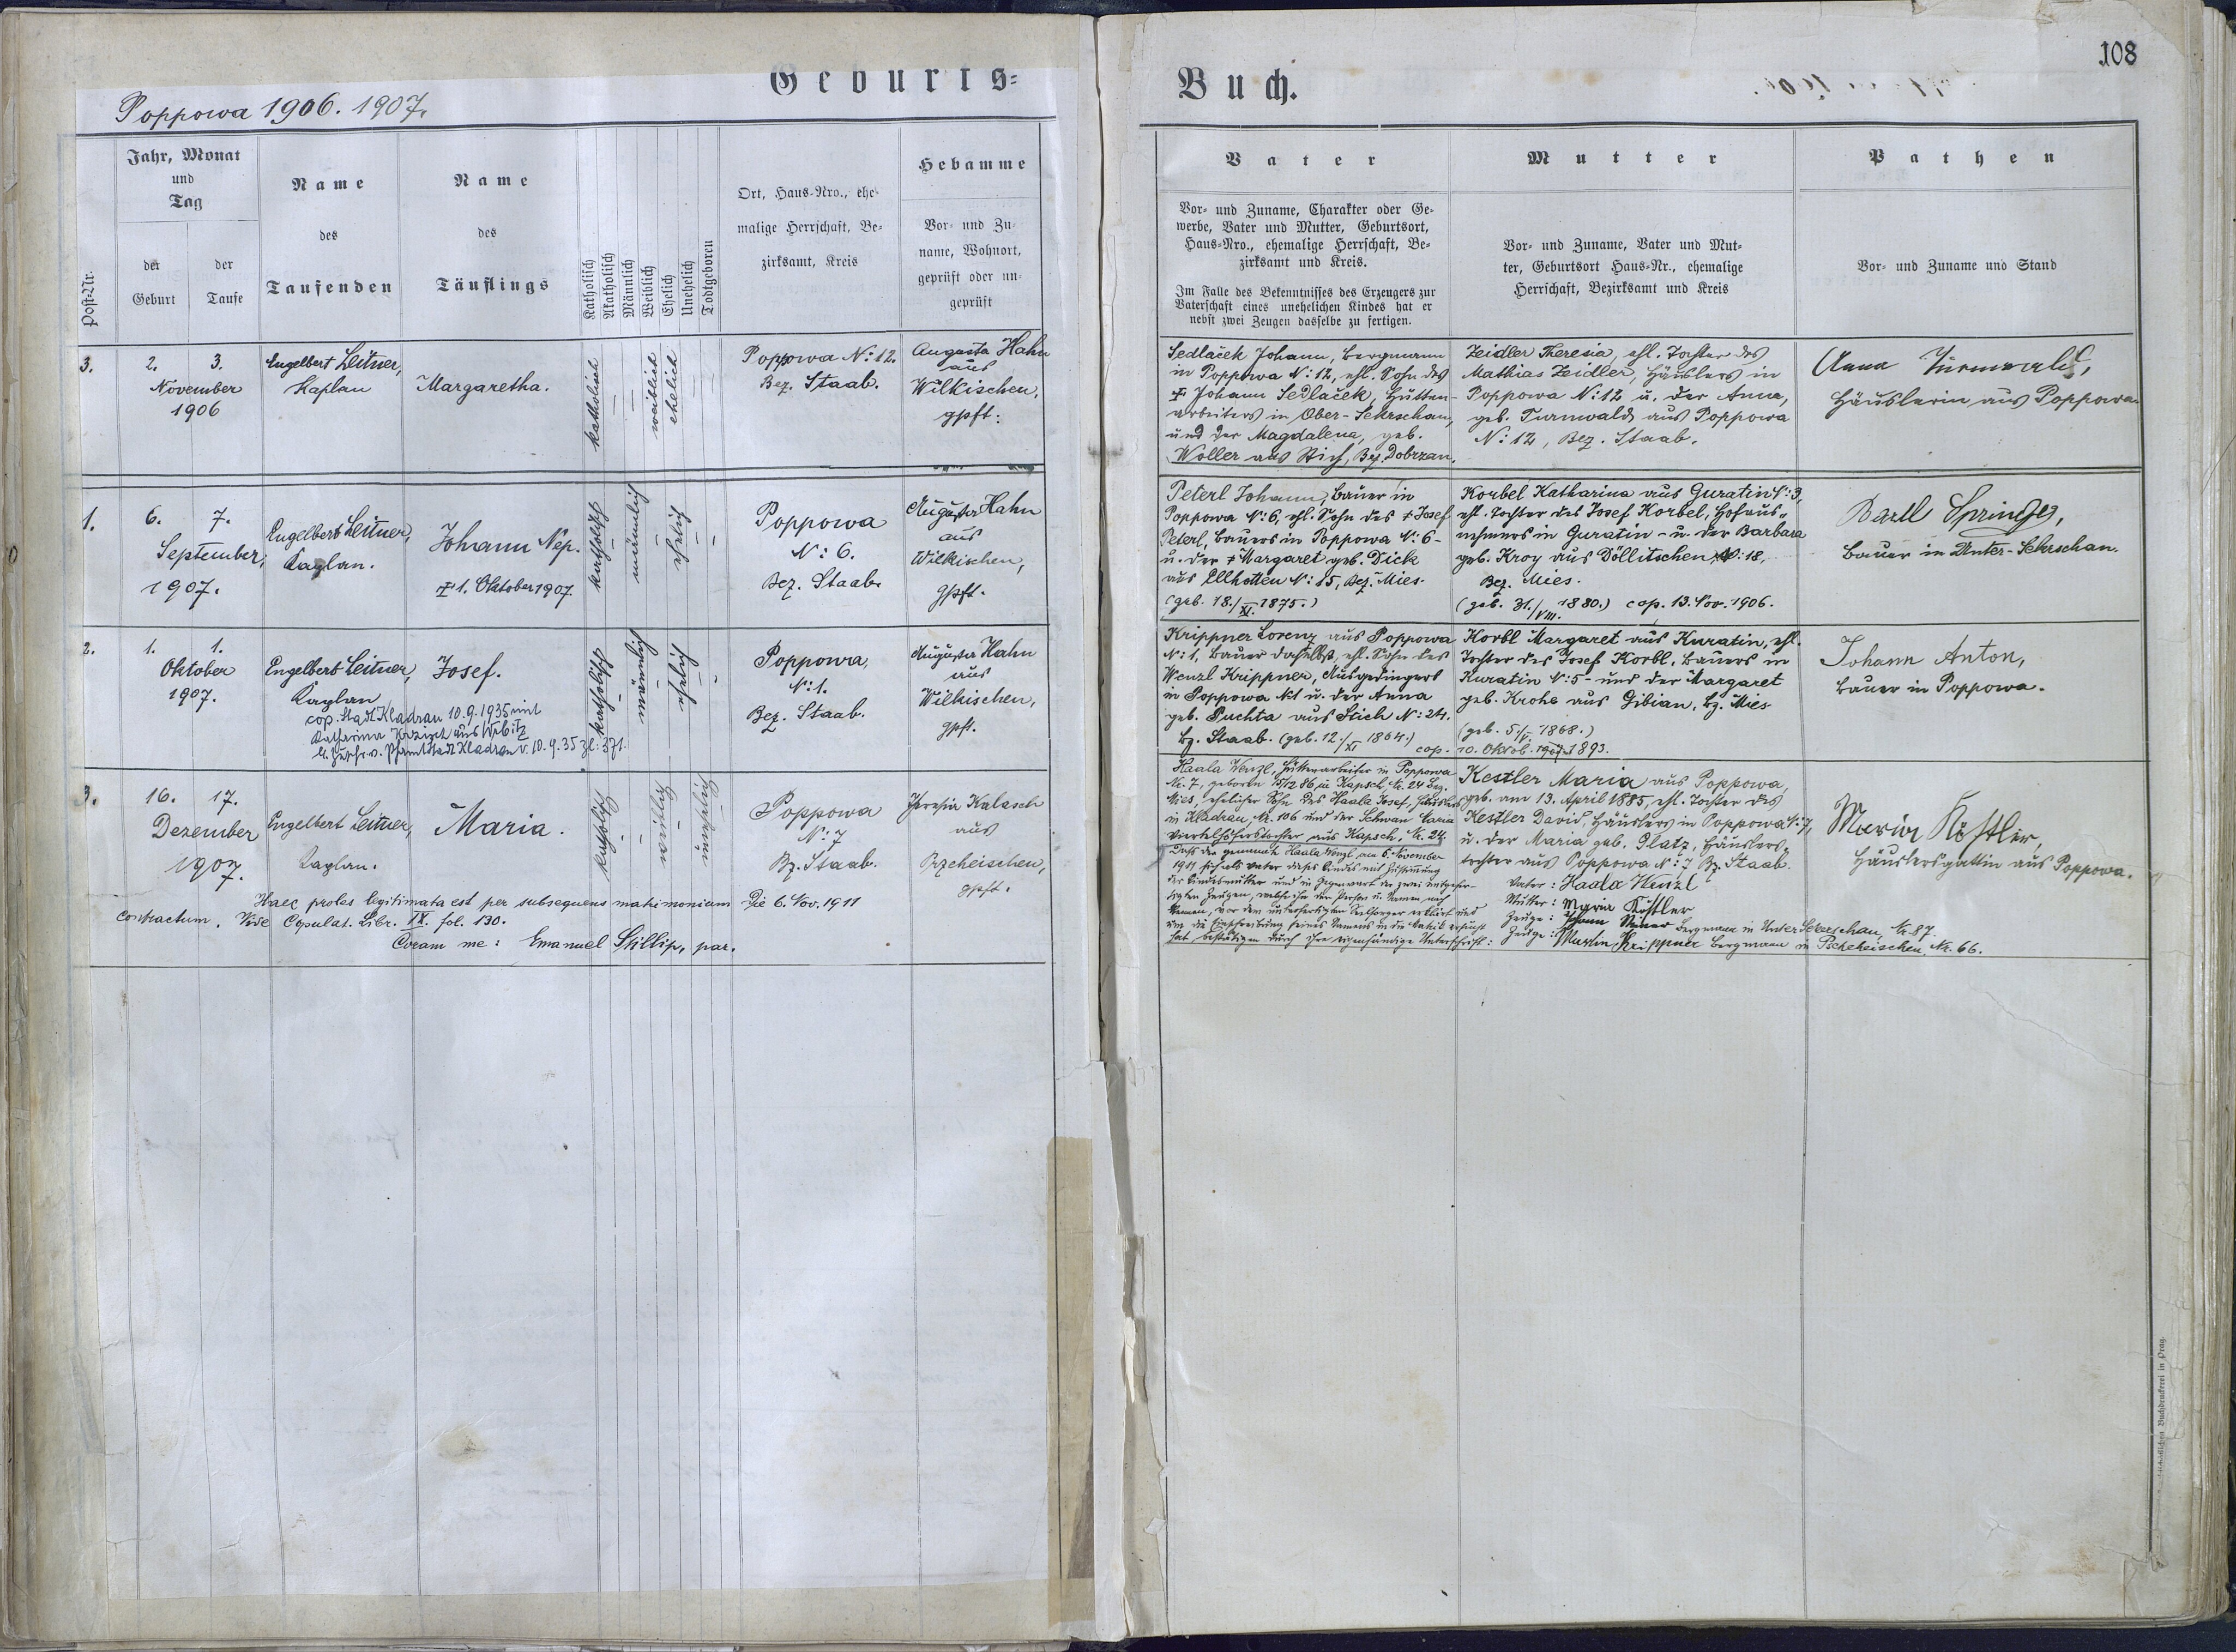 Geburts=
Poppowa 1906. 1907.
Post-Nr.
Jahr, Monat
und
Tag
der
Geburt
der
Taufe
Name
des
Taufenden
Name
des
Täuflings
Katholisch
Akatholisch
Männlich
Weiblich
Ehelich
Unehelich
Todtgeboren
Ort, Haus-Nro., ehe-
malige Herrschaft, Be-
zirksamt, Kreis
Hebamme
Vor- und Zu-
name, Wohnort,
geprüft oder un-
geprüft
3.
2. 3.
November
1906
Engelbert Leitner,
Kaplan
Margaretha.
katholisch
weiblich
ehelich
Poppowa N: 12.
Bez. Staab.
Augusta Hahn
aus
Wilkischen,
gpft.
1.
6. 7.
September,
1907.
Engelbert Leitner,
Kaplan.
Johann Nep.
† 1. Oktober 1907.
katholisch
männlich
ehelich
Poppowa
N: 6.
Bez. Staab.
Augusta Hahn
aus
Wilkischen,
gpft.
2.
1. 1.
Oktober
1907.
Engelbert Leitner,
Kaplan
Josef.
cop. Stadt Kladrau 10.9.1935 mit
Katharina aus
Pfarramt Stadt Kladrau v. 10.9.35 Zl: 371.
katholisch
männlich
ehelich
Poppowa,
N: 1.
Bez. Staab.
Augusta Hahn
aus
Wilkischen,
gpft.
3.
16. 17.
Dezember
1907.
Engelbert Leitner,
Kaplan.
Maria.
katholisch
weiblich
unehelich
Poppowa
N: 7
Bz. Staab.
Theresia Kalasch
aus
Pzcheischen,
gpft.
Haec proles legitimata est per subsequens matrimonium Die 6. Nov. 1911
contractum. Vide Copulat. Libr. IX. fol. 130.
Coram me: Emanuel Skillip, par.
Buch.
108
Vater
Vor- und Zuname, Charakter oder Ge-
werbe, Vater und Mutter, Geburtsort,
Haus-Nro., ehemalige Herrschaft, Be-
zirksamt und Kreis.
Im Falle des Bekenntnisses des Erzeugers zur
Vaterschaft eines unehelichen Kindes hat er
nebst zwei Zeugen dasselbe zu fertigen.
Mutter
Vor- und Zuname, Vater und Mut-
ter, Geburtsort Haus-Nr., ehemalige
Herrschaft, Bezirksamt und Kreis
Pathen
Vor- und Zuname und Stand
Sedlaček Johann, Bergmann
in Poppowa N: 12, ehl. Sohn des
† Johann Sedlaček, Hütten-
arbeiters in Ober-Sekerschan,
und der Magdalena, geb.
Woller aus Stich, Bez. Dobrzan.
Zeidler Theresia, ehl. Tochter des
Mathias Zeidler, Häuslers in
Poppowa N: 12 u. der Anna,
geb. Turnwald aus Poppowa
N: 12, Bez. Staab.
Anna Turnwald,
Häuslerin aus Poppowa.
Peterl Johann, Bauer in
Poppowa N: 6, ehl. Sohn des † Josef
Peterl, Bauers in Poppowa N: 6 -
u. der † Margaret geb. Dick
aus Ellhotten N: 15, Bez. Mies.
(geb. 18./XI. 1875.)
Korbel Katharina aus Guratin N: 3,
ehl. Tochter des Josef Korbel, Hofaus-
nehmers in Guratin - u. der Barbara
geb. Kroy aus Döllitschen N: 18,
Bez. Mies.
(geb. 31./VIII. 1880.) cop. 13. Nov. 1906.
Karl Springer,
Bauer in Unter-Sekerschan.
Krippner Lorenz aus Poppowa
N: 1, Bauer daselbst, ehl. Sohn des
Wenzl Krippner, Ausgedingers
in Poppowa N: 1 u. der Anna
geb. Puchta aus Stich N: 24.
Bz. Staab. (geb. 12./XI 1864.)
Korbl Margaret aus Kuratin, ehl.
Tochter des Josef Korbl, Bauers in
Kuratin N: 5 - und der Margaret
geb. Krohe aus Gibian, Bz. Mies
(geb. 5./V. 1868.)
cop. 10. Oktob. 1907 1893.
Johann Anton,
Bauer in Poppowa.
Haala Wenzl, Hüttenarbeiter in Poppowa
Nr. 7, geboren 15/12 86 in Kapsch, Nr. 24 Bez.
Mies, ehelicher Sohn des Haala Josef, Häuslers
in Kladrau, Nr. 106 und der Schwan Maria
Viertelhöferstochter aus Kapsch, Nr. 24.
Daß der genannte Haala Wenzl am 6. November
1911 sich als Vater dieses Kindes mit Zustimmung
der Kindesmutter und in Gegenwart der zwei mitgefer-
tigten Zeugen, welche ihn der Person u. Namen nach
kennen, vor dem unterfertigten Seelsorger erklärt und
um die Einschreibung seines Namens in die Matrik ersucht
hat bestätigen durch ihre eigenhändige Unterschrift:
Kestler Maria aus Poppowa,
geb. am 13. April 1885, ehl. Tochter des
Kestler David, Häuslers in Poppowa N: 7,
u. der Maria geb. Platz, Häuslers-
tochter aus Poppowa N: 7 Bz. Staab.
Vater: Haala Wenzl
Mutter: Maria Köstler
Zeuge: Johann Steiner Bergmann in Unter Sekerschan, Nr. 87.
Zeuge: Martin Krippner Bergmann in Pscheheischen, Nr. 66.
Maria Köstler,
Häuslersgattin aus Poppowa.
Buchdruckerei in Prag.